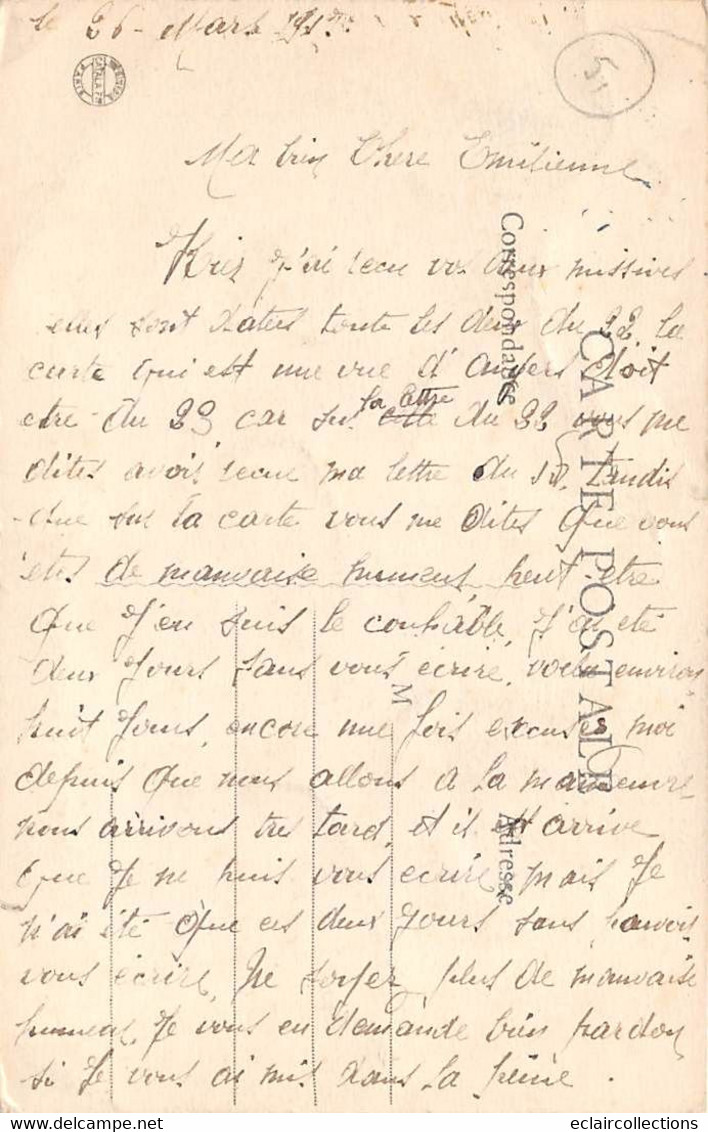 le 26 Mars 191
51
Ma bien Chere Emilienne
Hier j'ai recu vos deux missives
elles sont dates toute les deux du 22 la
carte qui est une vue d'Angers doit
etre du 23 car sur cette la lettre du 22 vous me
dites avoir recue ma lettre du 18. Tandis
que sur la carte vous me dites que vous
etes de mauvaise humeur, peut etre
que j'en suis le coupable, j'ai eté
deux jours sans vous écrire, voila environ
huit jours, encore une fois excuses moi
depuis que nous allons a la manoeuvre
nous arrivons tres tard, et il arrive
que je ne puis vous ecrire, mais je
n'ai été que ces deux jours sans pouvoir
vous écrire, Ne soyez plus de mauvaise
humeur, je vous en demande bien pardon
si je vous ai mis dans la peine.
CARTE POSTALE
Correspondance
M
Adresse
PARIS
eclaircollections.com